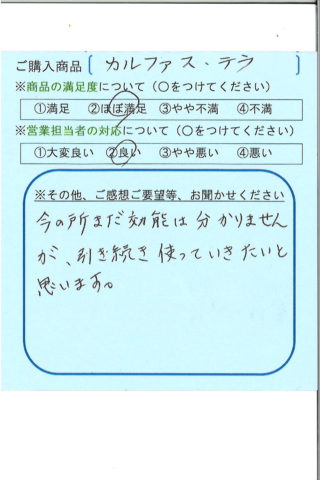 ご購入商品〔 カルファス・テラ 〕
※商品の満足度について（〇をつけてください）
①満足 ②ほぼ満足 ③やや不満 ④不満
※営業担当者の対応について（〇をつけてください）
①大変良い ②良い ③やや悪い ④悪い
※その他、ご感想ご要望等、お聞かせください
今の所まだ効能は分かりません
が、引き続き使っていきたいと
思います。